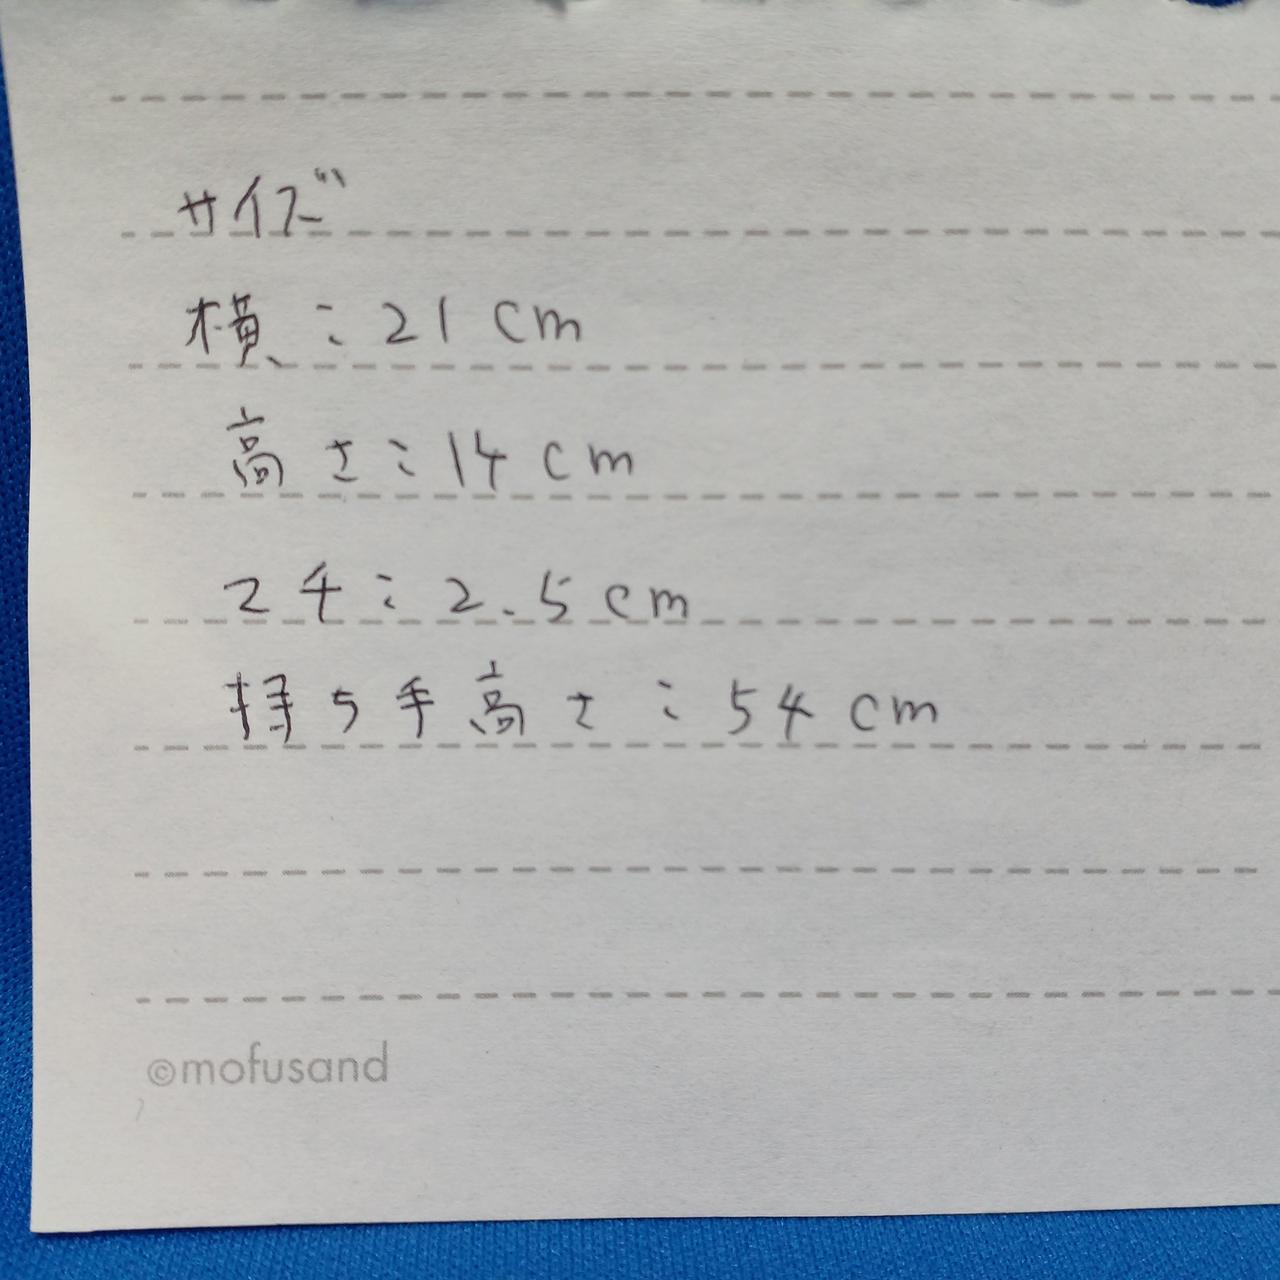 サイズ
横:21cm
高さ:14cm
マチ:2.5cm
持ち手高さ:54cm
©mofusand